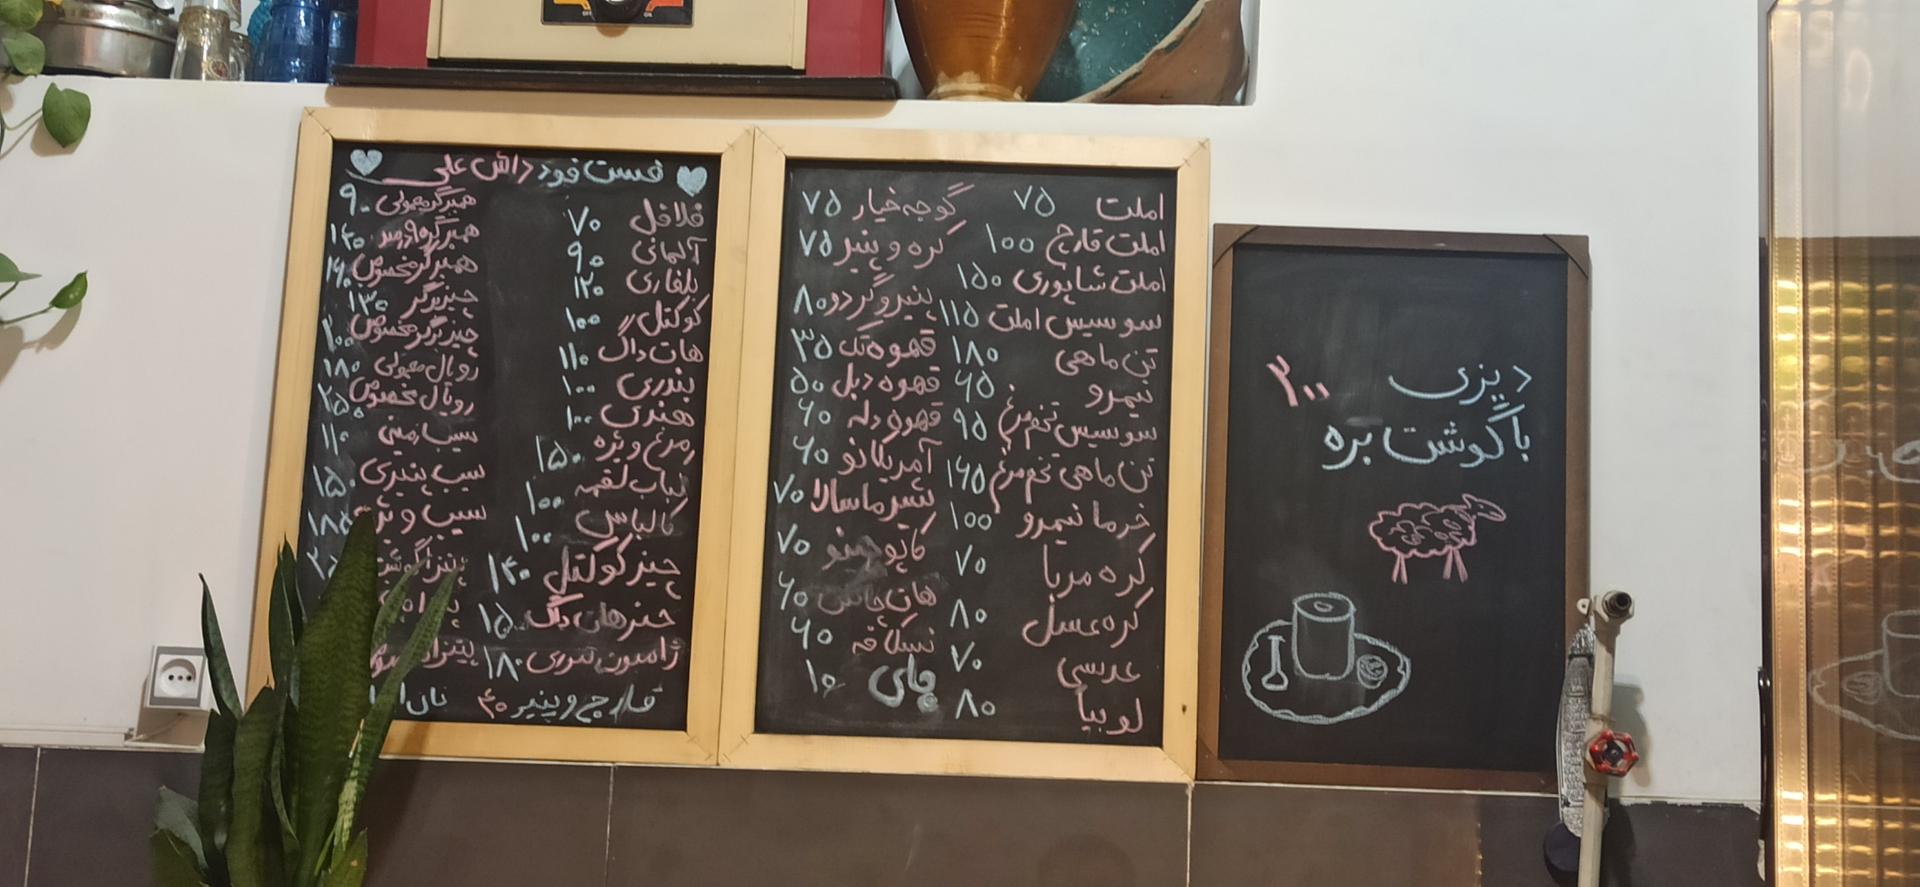 فست فود داش علی
فلافل ۷۰
آلمانی ۹۰
بلغاری ۱۲۰
کوکتل ۱۰۰
هات داگ ۱۱۰
بندری ۱۰۰
هندی ۱۰۰
مرغ ویژه ۱۵۰
کباب لقمه ۱۰۰
کالباس ۱۰۰
چیز کوکتل ۱۴۰
چیز هات داگ ۱۵۰
ژامبون تنوری ۱۸۰
قارچ و پنیر ۴۰
همبرگر معمولی ۹۰
همبرگر
همبرگر مخصوص
چیزبرگر ۱۳۰
چیزبرگر مخصوص ۲۰۰
رویال معمولی ۱۸۰
رویال مخصوص ۲۵۰
سیب زمینی ۱۱۰
سیب پنیری ۱۵۰
سیب ویژه ۱۸۵
پیتزا گوشت
پیتزا
نان
املت ۷۵
املت قارچ ۱۰۰
املت شاپوری ۱۵۰
سوسیس املت ۱۱۵
تن ماهی ۱۸۰
نیمرو ۶۵
سوسیس تخم مرغ ۹۵
تن ماهی تخم مرغ ۱۶۵
خرما نیمرو ۱۰۰
کره مربا ۷۰
کره عسل ۸۰
عدسی ۷۰
لوبیا ۸۰
گوجه خیار ۷۵
کره و پنیر ۷۵
پنیر و گردو ۸۰
قهوه تک ۳۵
قهوه دبل ۵۰
قهوه دله ۶۰
آمریکانو ۶۰
شیر ماسالا ۷۰
کاپوچینو ۷۰
هات چاکلت ۶۰
نسکافه ۶۰
چای ۱۰
دیزی ۲۰۰
با گوشت بره